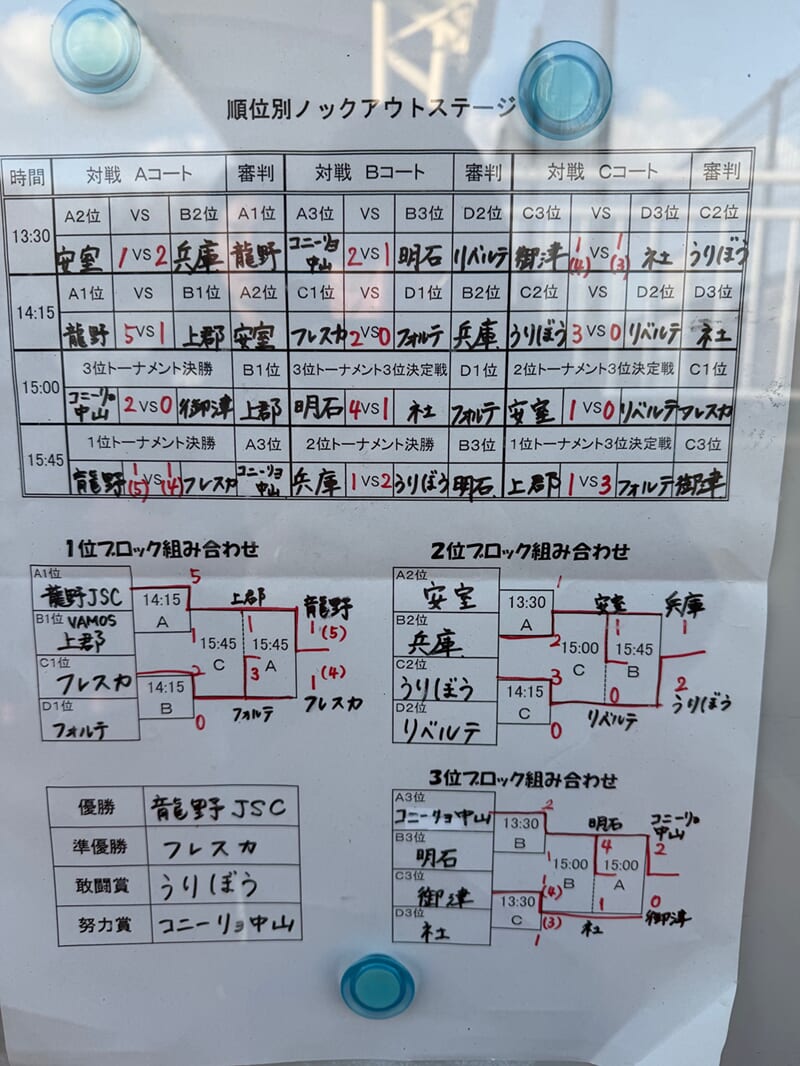 順位別ノックアウトステージ
時間 対戦 Aコート 審判 対戦 Bコート 審判 対戦 Cコート 審判
13:30 A2位 VS B2位 A1位 A3位 VS B3位 D2位 C3位 VS D3位 C2位
安室 1 VS 2 兵庫 龍野 コニーリョ中山 2 VS 1 明石 リベルテ 御津 1(4) VS 1(3) 社 うりぼう
14:15 A1位 VS B1位 A2位 C1位 VS D1位 B2位 C2位 VS D2位 D3位
龍野 5 VS 1 上郡 安室 フレスカ 2 VS 0 フォルテ 兵庫 うりぼう 3 VS 0 リベルテ 社
15:00 3位トーナメント決勝 B1位 3位トーナメント3位決定戦 D1位 2位トーナメント3位決定戦 C1位
コニーリョ中山 2 VS 0 御津 上郡 明石 4 VS 1 社 フォルテ 安室 1 VS 0 リベルテ フレスカ
15:45 1位トーナメント決勝 A3位 2位トーナメント決勝 B3位 1位トーナメント3位決定戦 C3位
龍野 1(5) VS 1(4) フレスカ コニーリョ中山 兵庫 1 VS 2 うりぼう 明石 上郡 1 VS 3 フォルテ 御津
1位ブロック組み合わせ
A1位
龍野JSC
B1位 VAMOS
上郡
C1位
フレスカ
D1位
フォルテ
5
14:15
A
1
2
14:15
B
0
上郡
15:45
C
1
3
フォルテ
15:45
A
龍野
1(5)
1(4)
フレスカ
2位ブロック組み合わせ
A2位
安室
B2位
兵庫
C2位
うりぼう
D2位
リベルテ
1
13:30
A
2
3
14:15
C
0
安室
15:00
C
1
0
リベルテ
15:45
B
兵庫
1
2
うりぼう
優勝 龍野JSC
準優勝 フレスカ
敢闘賞 うりぼう
努力賞 コニーリョ中山
3位ブロック組み合わせ
A3位
コニーリョ中山
B3位
明石
C3位
御津
D3位
社
2
13:30
B
1
1(4)
13:30
C
(3)
1
明石
15:00
B
4
1
社
15:00
A
コニーリョ中山
2
0
御津